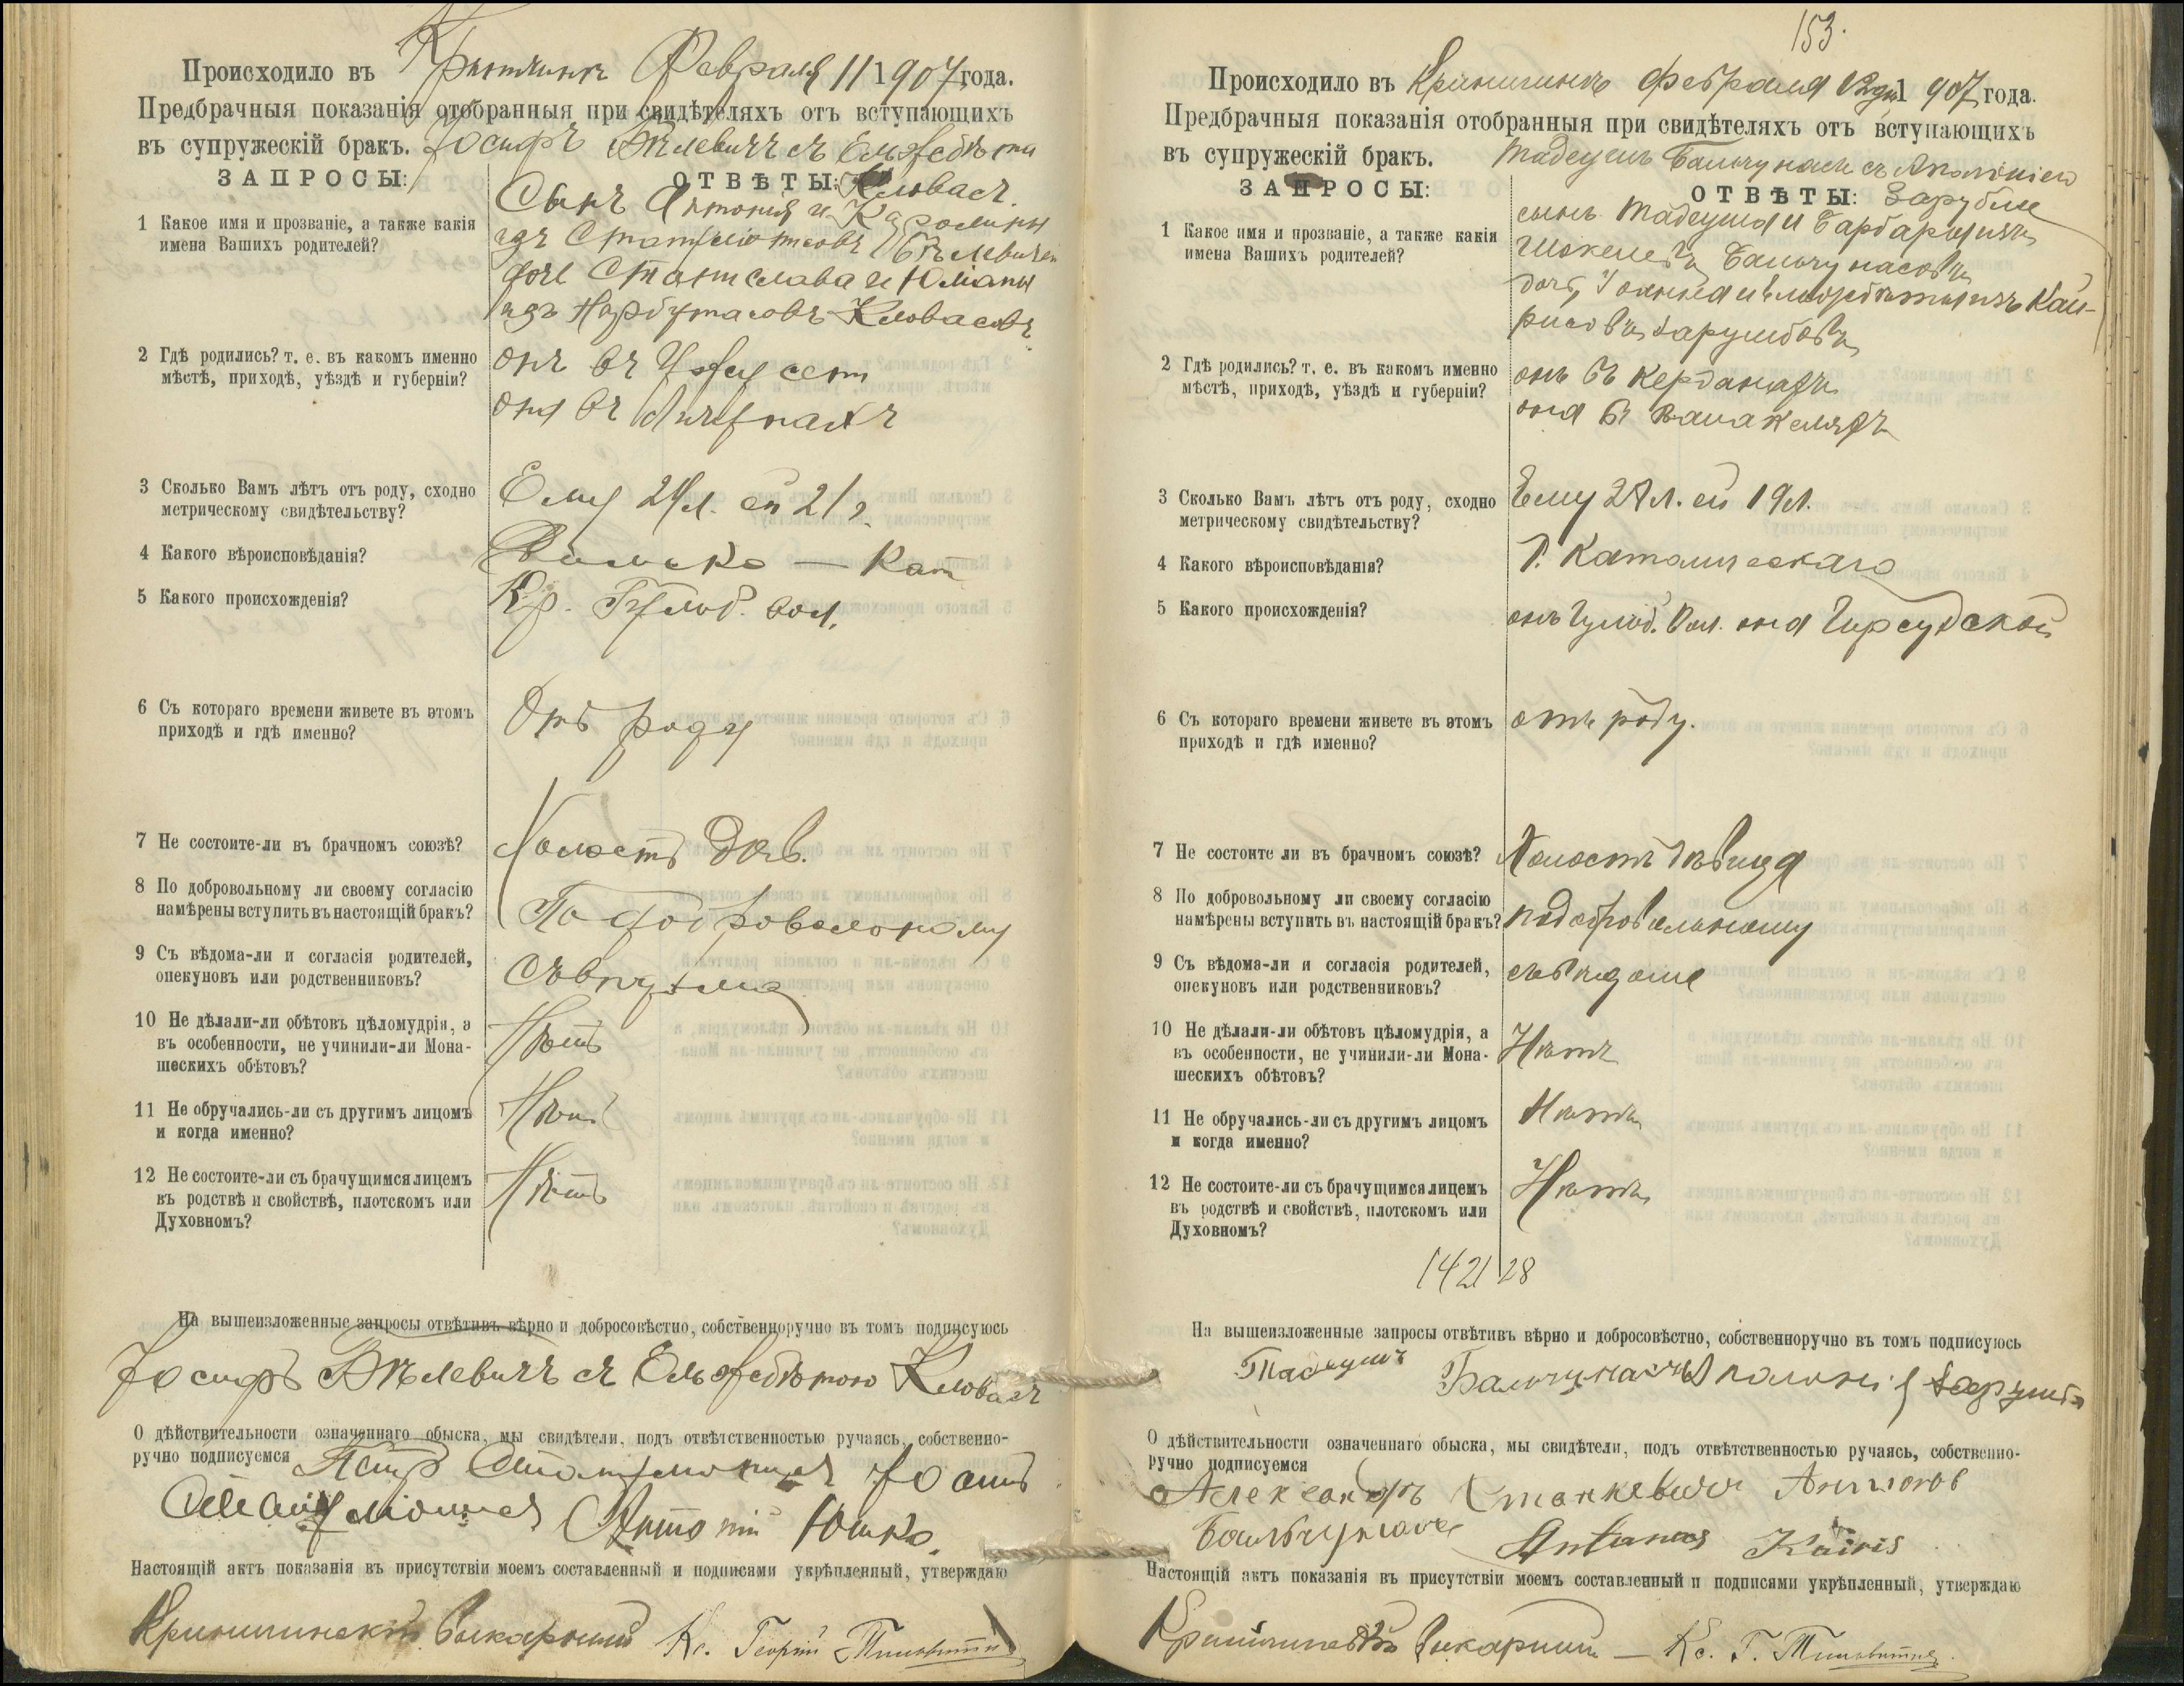 Происходило въ Кретингѣ Февраля 11 1907 года.
Предбрачныя показанія отобранныя при свидѣтеляхъ отъ вступающихъ
въ супружескій бракъ. Іосифъ Вѣлевичъ съ Ельжбѣтою
ЗАПРОСЫ: ОТВѢТЫ: Кловасъ.
1 Какое имя и прозваніе, а также какія
имена Вашихъ родителей?
Сынъ Антонія и Каролины
изъ Вѣлевичей
дочь Станислава и Юліаны
изъ Нарбутасовъ Кловасовъ
2 Гдѣ родились? т. е. въ какомъ именно
мѣстѣ, приходѣ, уѣздѣ и губерніи?
онъ въ
она въ
3 Сколько Вамъ лѣтъ отъ роду, сходно
метрическому свидѣтельству?
Ему 24 л. ей 21 г.
4 Какого вѣроисповѣданія?
Римско — Кат
5 Какого происхожденія?
Кр. вол.
6 Съ котораго времени живете въ этомъ
приходѣ и гдѣ именно?
Отъ роду
7 Не состоите-ли въ брачномъ союзѣ?
Холостъ дѣв.
8 По добровольному ли своему согласію
намѣрены вступить въ настоящій бракъ?
По добровольному
9 Съ вѣдома-ли и согласія родителей,
опекуновъ или родственниковъ?
Съ вѣдома
10 Не дѣлали-ли обѣтовъ цѣломудрія, а
въ особенности, не учинили-ли Мона-
шескихъ обѣтовъ?
Нѣтъ
11 Не обручались-ли съ другимъ лицомъ
и когда именно?
Нѣтъ
12 Не состоите-ли съ брачущимся лицемъ
въ родствѣ и свойствѣ, плотскомъ или
Духовномъ?
Нѣтъ
На вышеизложенные запросы отвѣтивъ вѣрно и добросовѣстно, собственноручно въ томъ подписуюсь
Іосифъ Вѣлевичъ съ Ельжбѣтою Кловасъ
О дѣйствительности означеннаго обыска, мы свидѣтели, подъ отвѣтственностью ручаясь, собственно-
ручно подписуемся Петръ
Антоній Юшко.
Настоящій актъ показанія въ присутствіи моемъ составленный и подписями укрѣпленный, утверждаю
викарный Кс. Георгій
153.
Происходило въ Февраля 1907 года.
Предбрачныя показанія отобранныя при свидѣтеляхъ отъ вступающихъ
въ супружескій бракъ. Тадеушъ Бальчунасъ съ Аполоніею
ЗАПРОСЫ: ОТВѢТЫ:
1 Какое имя и прозваніе, а также какія
имена Вашихъ родителей?
сынъ Тадеуша и Барбары изъ
Бальчунасовъ
дочь Іоанна и Ельжбѣты изъ Каи-
рисовъ Зарумбовъ
2 Гдѣ родились? т. е. въ какомъ именно
мѣстѣ, приходѣ, уѣздѣ и губерніи?
онъ въ Керданахъ
она въ
3 Сколько Вамъ лѣтъ отъ роду, сходно
метрическому свидѣтельству?
Ему 27 л. ей 19 л.
4 Какого вѣроисповѣданія?
Р. Католическаго
5 Какого происхожденія?
онъ вол. она
6 Съ котораго времени живете въ этомъ
приходѣ и гдѣ именно?
отъ роду.
7 Не состоите ли въ брачномъ союзѣ?
Холостъ дѣвица
8 По добровольному ли своему согласію
намѣрены вступить въ настоящій бракъ?
подобровольному
9 Съ вѣдома-ли и согласія родителей,
опекуновъ или родственниковъ?
съ вѣдома
10 Не дѣлали-ли обѣтовъ цѣломудрія, а
въ особенности, не учинили-ли Мона-
шескихъ обѣтовъ?
Нѣтъ
11 Не обручались-ли съ другимъ лицомъ
и когда именно?
Нѣтъ
12 Не состоите-ли съ брачущимся лицемъ
въ родствѣ и свойствѣ, плотскомъ или
Духовномъ?
Нѣтъ
14 21 28
На вышеизложенные запросы отвѣтивъ вѣрно и добросовѣстно, собственноручно въ томъ подписуюсь
Тадеушъ Бальчунасъ Аполонія
О дѣйствительности означеннаго обыска, мы свидѣтели, подъ отвѣтственностью ручаясь, собственно-
ручно подписуемся
Александръ Станкевичъ Антонов
Бальчунасъ Antanas Kairis
Настоящій актъ показанія въ присутствіи моемъ составленный и подписями укрѣпленный, утверждаю
викарный — Кс. Г.